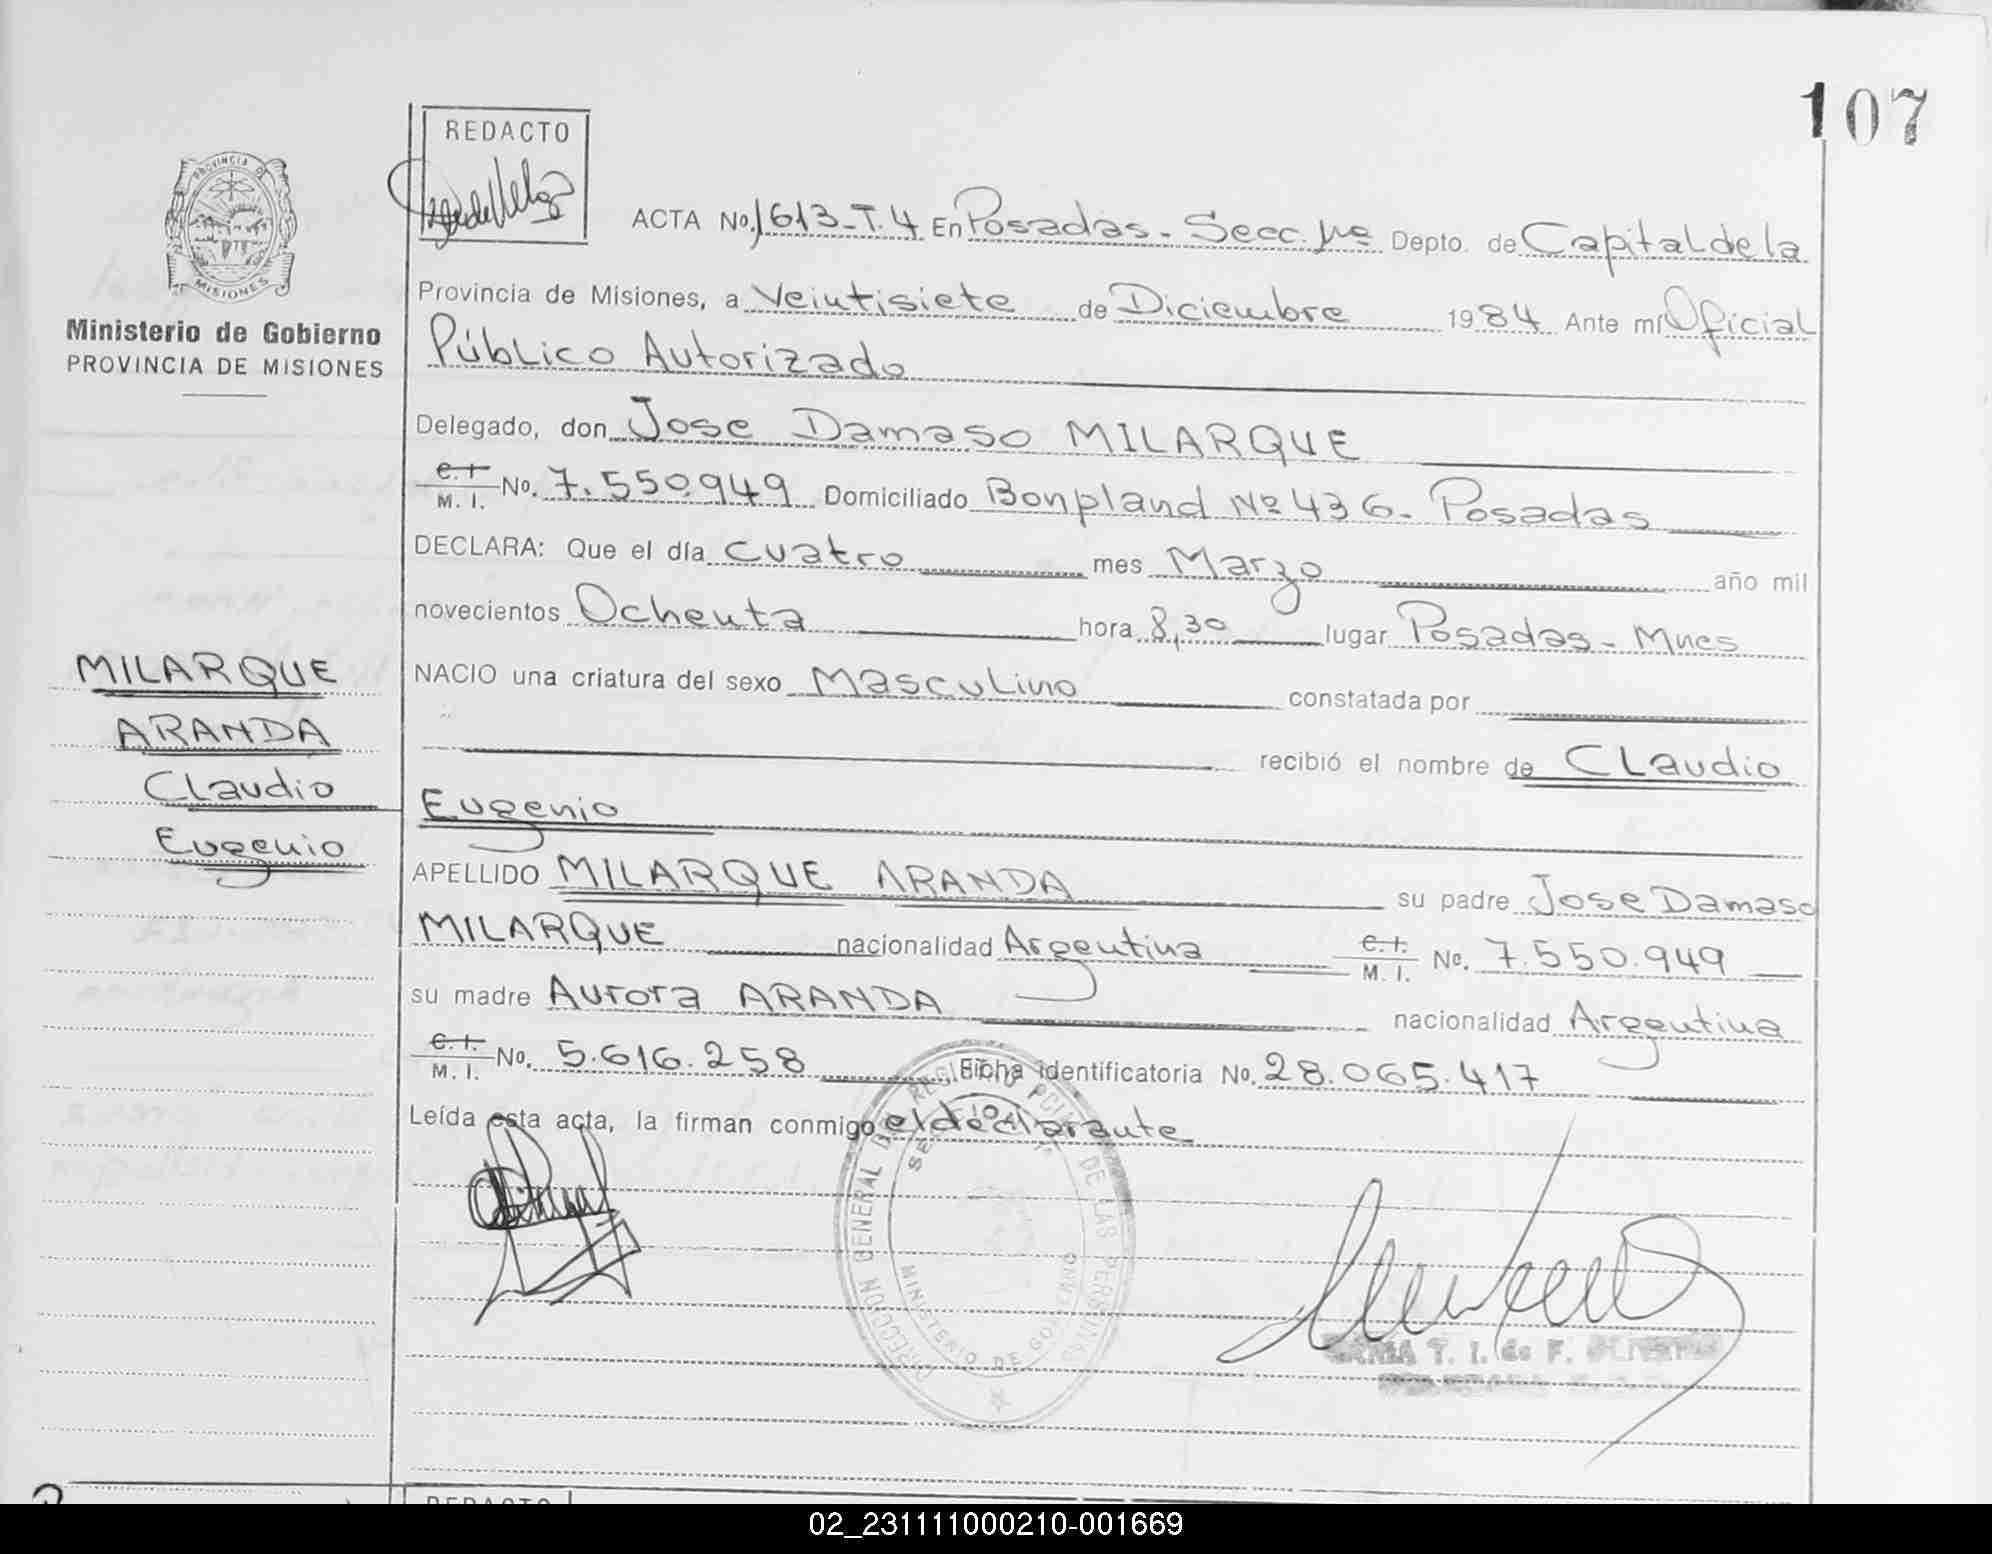 107
REDACTO
PROVINCIA DE
MISIONES
Ministerio de Gobierno
PROVINCIA DE MISIONES
ACTA No. 1613-T.4 En Posadas - Secc. 1ra Depto. de Capital de la
Provincia de Misiones, a Veintisiete de Diciembre 1984 Ante mí Oficial
Público Autorizado
Delegado, don Jose Damaso MILARQUE
C. I.
M. I. No. 7.550.949 Domiciliado Bonpland Nº 436 - Posadas
DECLARA: Que el día cuatro mes Marzo año mil
novecientos Ochenta hora 8,30 lugar Posadas - Mnes
NACIO una criatura del sexo Masculino constatada por
recibió el nombre de Claudio
Eugenio
APELLIDO MILARQUE ARANDA su padre Jose Damaso
MILARQUE nacionalidad Argentina C. I. M. I. No. 7.550.949
su madre Aurora ARANDA nacionalidad Argentina
C. I.
M. I. No. 5.616.258 Ficha identificatoria No. 28.065.417
Leída esta acta, la firman conmigo el declarante
MILARQUE
ARANDA
Claudio
Eugenio
DIRECCION GENERAL DEL REGISTRO PCIAL. DE LAS PERSONAS
MINISTERIO DE GOBIERNO
T. I. de F.
REDACTO
02_231111000210-001669